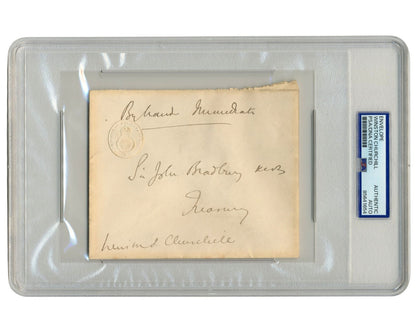 By hand Immediate
Sir John Bradbury KCB
Treasury
Winston S Churchill
ENVELOPE
WINSTON CHURCHILL
PSA/DNA CERTIFIED
AUTHENTIC
AUTO